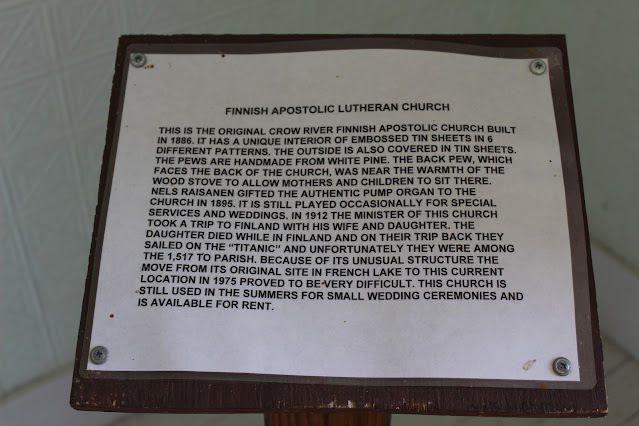 FINNISH APOSTOLIC LUTHERAN CHURCH
THIS IS THE ORIGINAL CROW RIVER FINNISH APOSTOLIC CHURCH BUILT
IN 1886. IT HAS A UNIQUE INTERIOR OF EMBOSSED TIN SHEETS IN 6
DIFFERENT PATTERNS. THE OUTSIDE IS ALSO COVERED IN TIN SHEETS.
THE PEWS ARE HANDMADE FROM WHITE PINE. THE BACK PEW, WHICH
FACES THE BACK OF THE CHURCH, WAS NEAR THE WARMTH OF THE
WOOD STOVE TO ALLOW MOTHERS AND CHILDREN TO SIT THERE.
NELS RAISANEN GIFTED THE AUTHENTIC PUMP ORGAN TO THE
CHURCH IN 1895. IT IS STILL PLAYED OCCASIONALLY FOR SPECIAL
SERVICES AND WEDDINGS. IN 1912 THE MINISTER OF THIS CHURCH
TOOK A TRIP TO FINLAND WITH HIS WIFE AND DAUGHTER. THE
DAUGHTER DIED WHILE IN FINLAND AND ON THEIR TRIP BACK THEY
SAILED ON THE "TITANIC" AND UNFORTUNATELY THEY WERE AMONG
THE 1,517 TO PARISH. BECAUSE OF ITS UNUSUAL STRUCTURE THE
MOVE FROM ITS ORIGINAL SITE IN FRENCH LAKE TO THIS CURRENT
LOCATION IN 1975 PROVED TO BE VERY DIFFICULT. THIS CHURCH IS
STILL USED IN THE SUMMERS FOR SMALL WEDDING CEREMONIES AND
IS AVAILABLE FOR RENT.